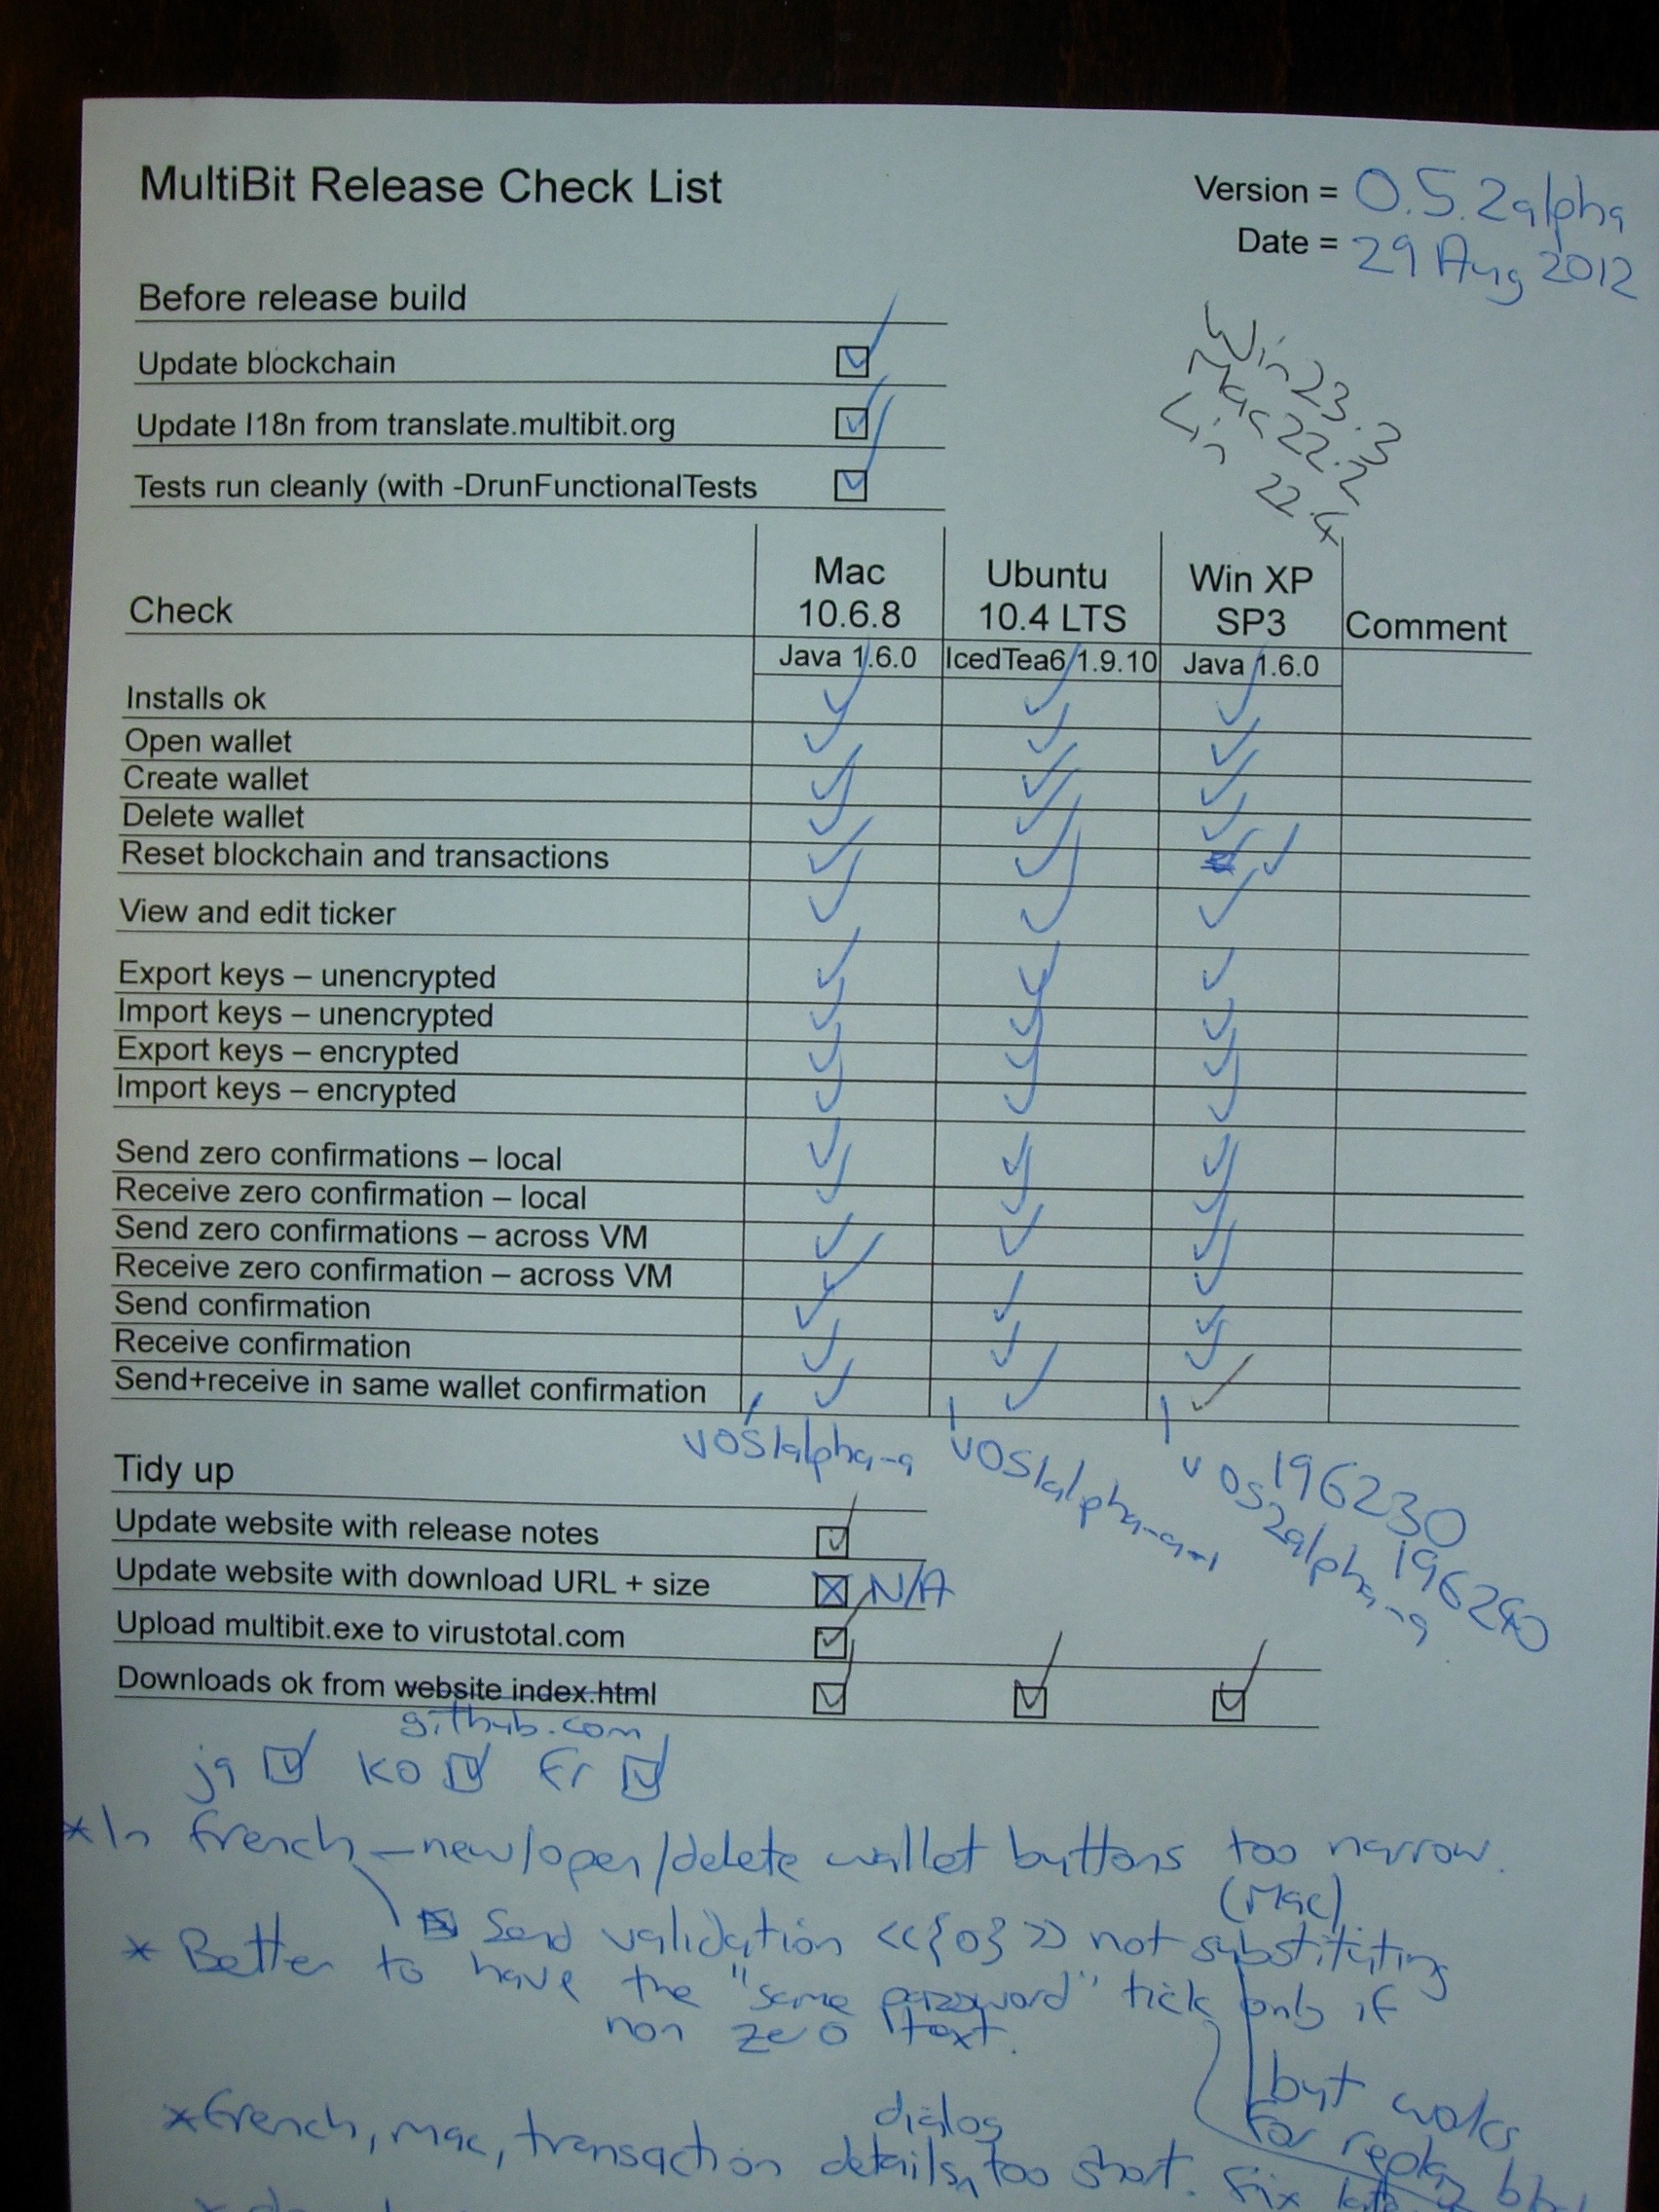 MultiBit Release Check List
Version = 0.5.2alpha
Date = 29 Aug 2012
Before release build
Update blockchain ☑
Update I18n from translate.multibit.org ☑
Tests run cleanly (with -DrunFunctionalTests ☑
Win 23.3
Mac 22.2
Lin 22.4
Check Mac 10.6.8 Ubuntu 10.4 LTS Win XP SP3 Comment
Java 1.6.0 IcedTea6 1.9.10 Java 1.6.0
Installs ok ✓ ✓ ✓
Open wallet ✓ ✓ ✓
Create wallet ✓ ✓ ✓
Delete wallet ✓ ✓ ✓
Reset blockchain and transactions ✓ ✓ ✓
View and edit ticker ✓ ✓ ✓
Export keys – unencrypted ✓ ✓ ✓
Import keys – unencrypted ✓ ✓ ✓
Export keys – encrypted ✓ ✓ ✓
Import keys – encrypted ✓ ✓ ✓
Send zero confirmations – local ✓ ✓ ✓
Receive zero confirmation – local ✓ ✓ ✓
Send zero confirmations – across VM ✓ ✓ ✓
Receive zero confirmation – across VM ✓ ✓
Send confirmation ✓ ✓ ✓
Receive confirmation ✓ ✓ ✓
Send+receive in same wallet confirmation ✓ ✓ ✓
v051alpha-a v051alpha-a-1 v052alpha-a
196230
196240
Tidy up
Update website with release notes ☑
Update website with download URL + size ☒ N/A
Upload multibit.exe to virustotal.com ☑
Downloads ok from website index.html ☑ ☑ ☑
github.com
ja ☑ ko ☑ Fr ☑
* In French – new/open/delete wallet buttons too narrow.
(Mac)
Send validation <<{0}>> not substituting
* Better to have the "same password" tick only if
non zero text.
but works
for replay
dialog
* French, mac, transaction details too short. Fix